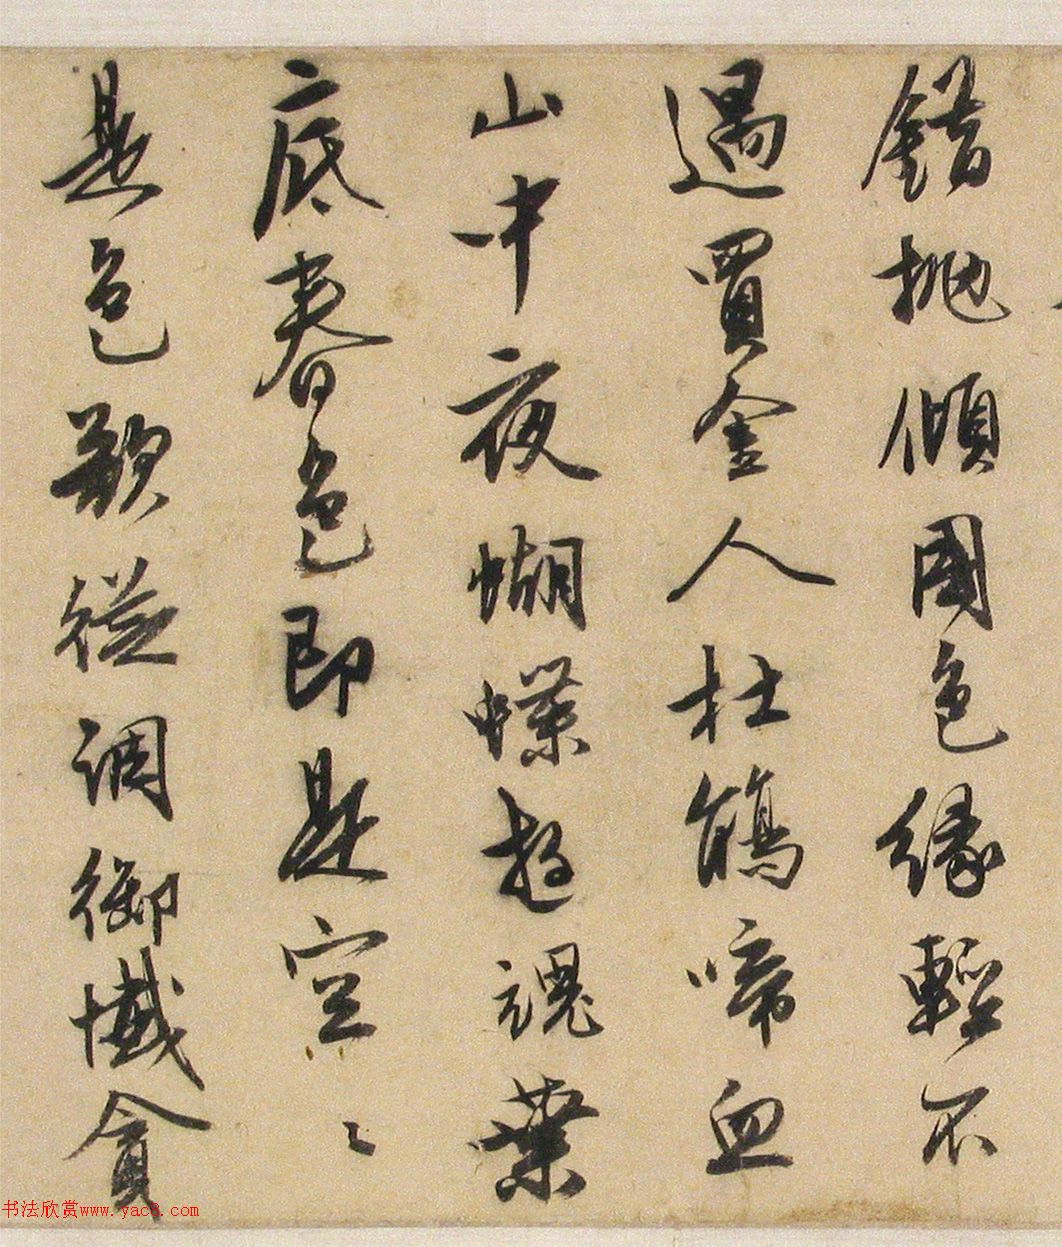 錯拋傾國色緣輕不
遇買金人杜鵑啼血
山中夜蝴蝶遊魂葉
底春色即是空々
是色欲從調御懺貪
书法欣赏www.yac8.com